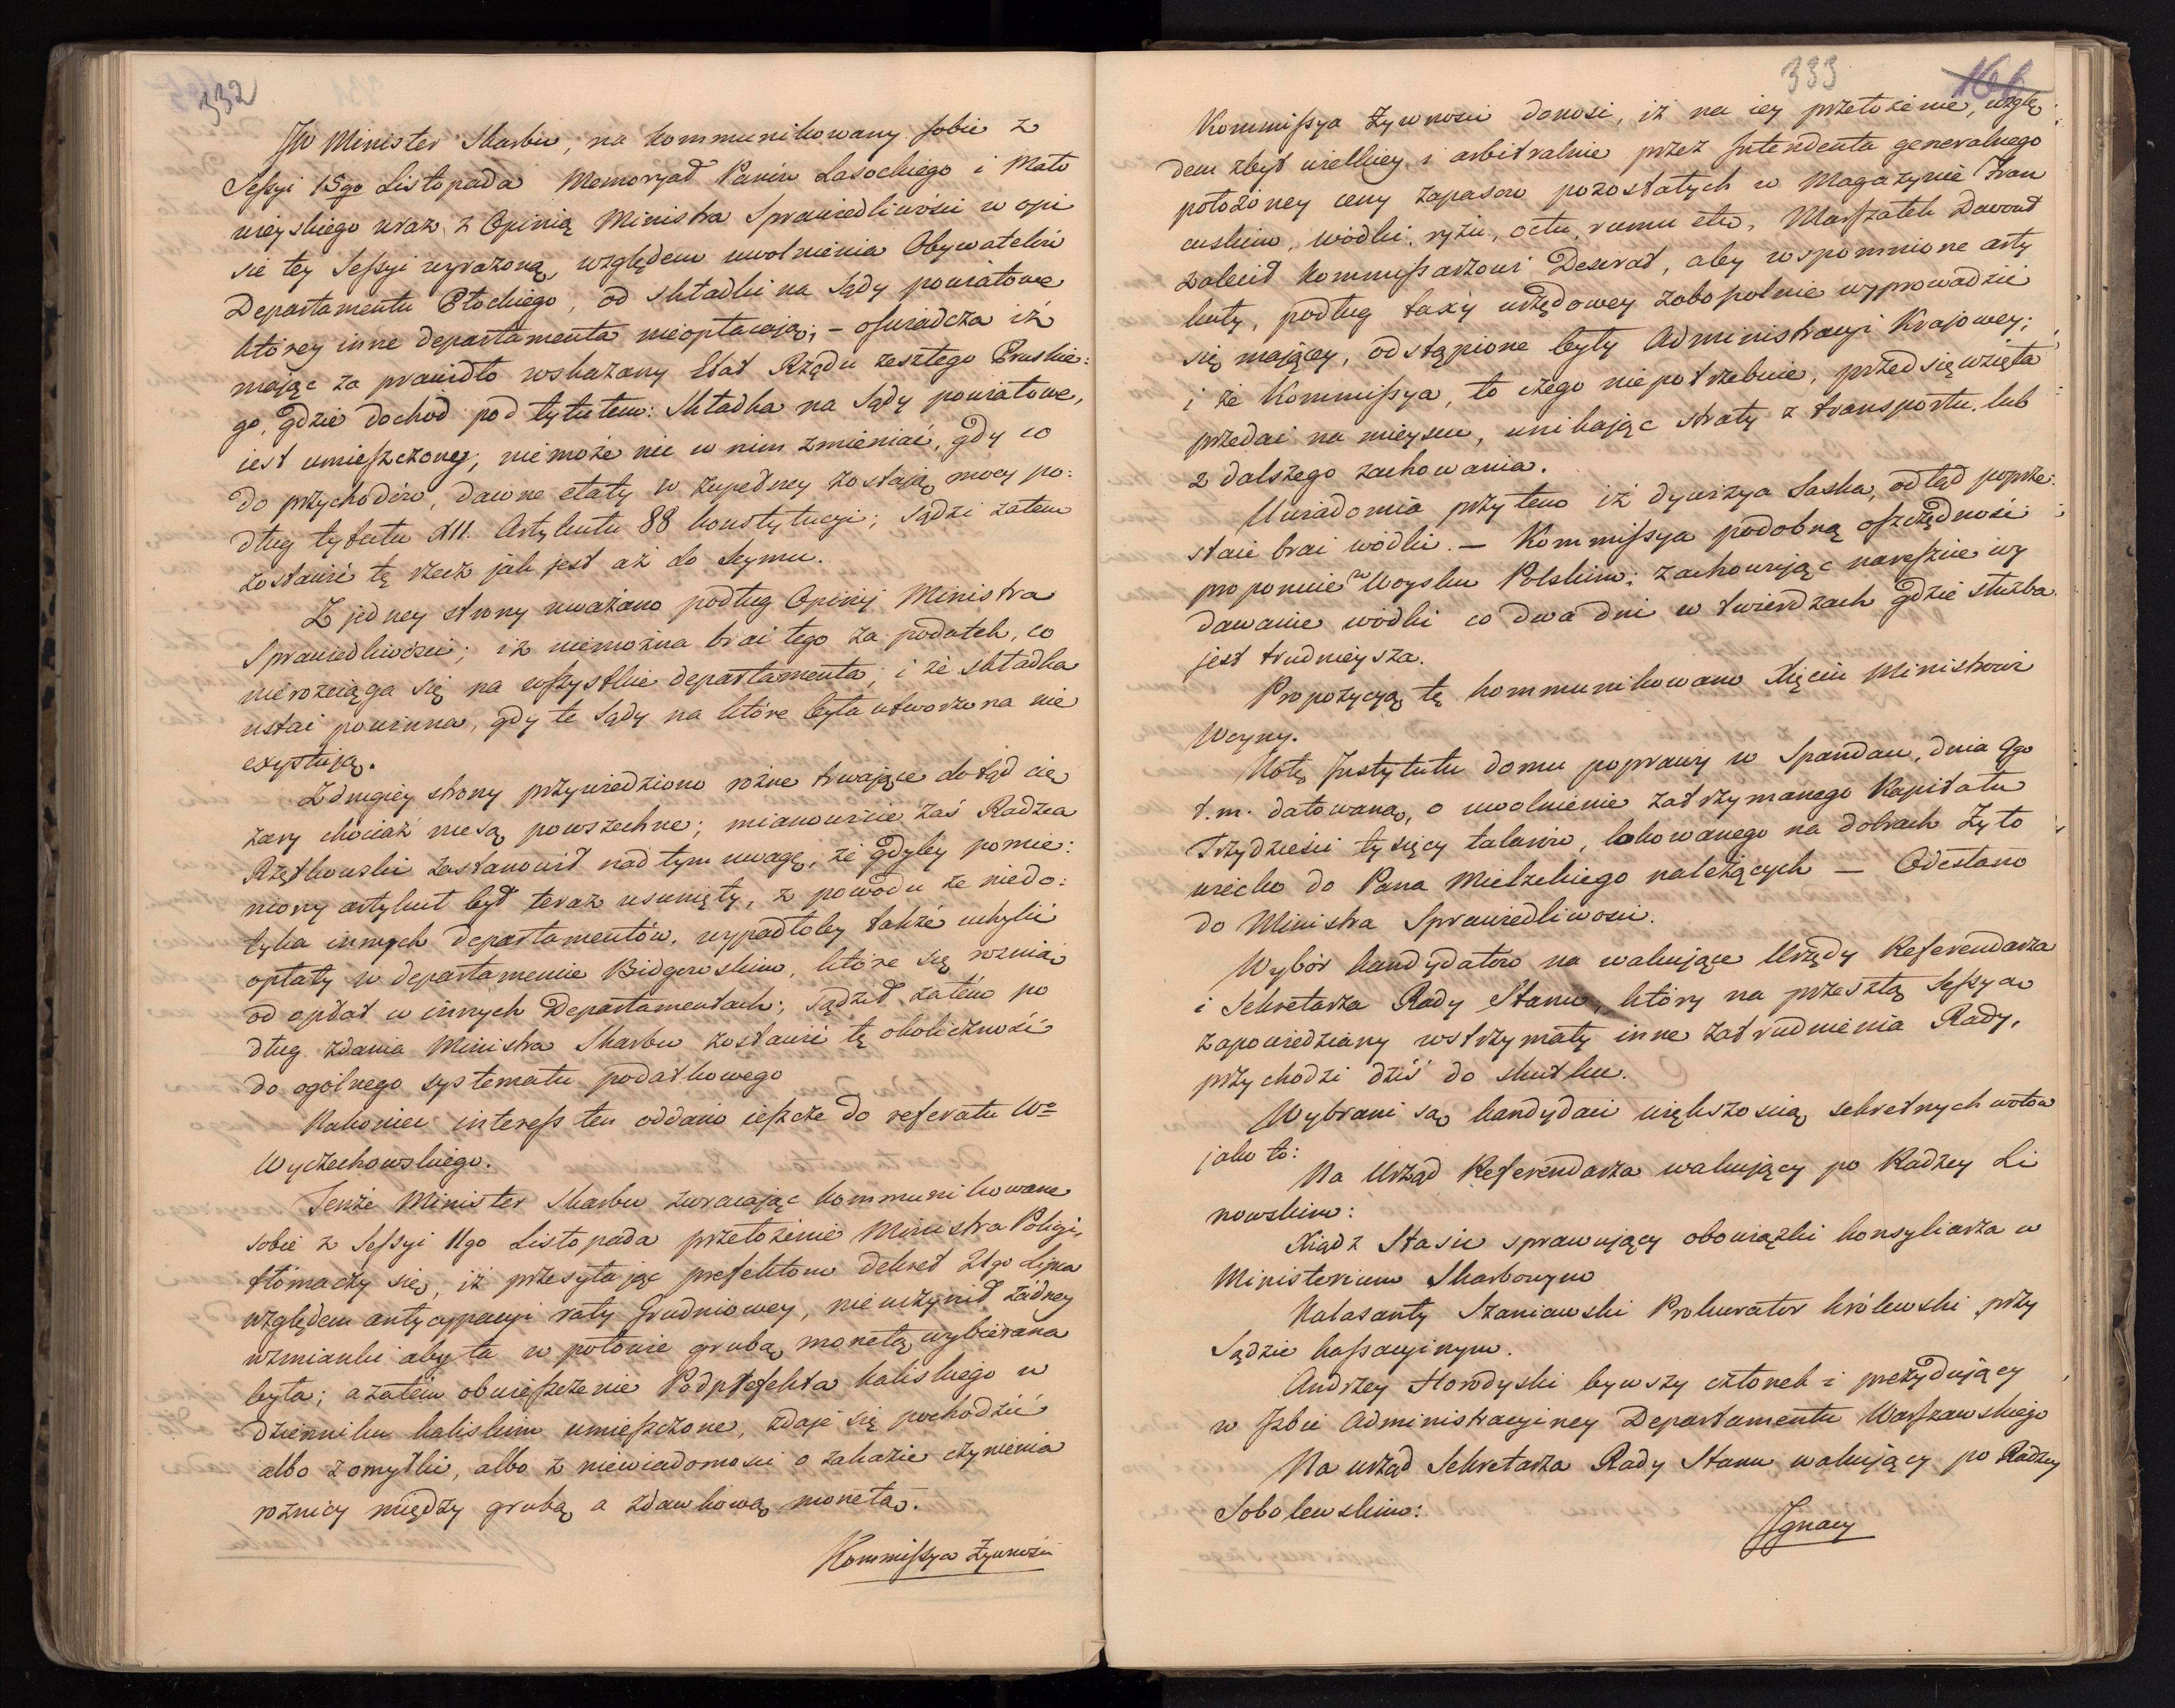 332
JW Minister Skarbu, na kommunikowany sobie z
Sessyi 15go Listopada Memoryał Panów Lasockiego i Mato
wieyskiego wraz z Opinią Ministra Sprawiedliwości w opi
sie tey Sessyi wyrażoną, względem uwolnienia Obywatelów
Departamentu Płockiego, od składki na Sądy powiatowe
którey inne departamenta nieopłacają; – oświadcza iż
mając za prawidło wskazany Etat Rządu zeszłego Pruskie:
go, gdzie dochod pod tytułem: Składka na Sądy powiatowe,
iest umieszczony, niemoże nic w nim zmieniać, gdy co
do przychodów, dawne etaty w zupełney zostają mocy po:
dług tytułu XII. Artykułu 88 konstytucyi; sądzi zatem
zostawić tę rzecz jak jest aż do Seymu.
Z jedney strony uważano podług Opinij Ministra
Sprawiedliwości; iż niemożna brać tego za podatek, co
nierozciąga się na wszystkie departamenta; i że składka
ustać powinna, gdy te Sądy na które była utworzona nie
exystują.
Z drugiey strony przywiedziono rożne trwające dotąd cię
żary chociaż niesą powszechne; mianowicie zaś Radzca
Rzętkowski zastanowił nad tym uwagę, że gdyby pomie:
niony artykuł był teraz usunięty, z powodu że niedo:
tyka innych departamentów, wypadłoby także uchylić
opłaty w departamencie Bidgowskim, które się roznią
od opłat w innych Departamentach; sądził zatem po
dług zdania Ministra Skarbu zostawić tę okoliczność
do ogólnego systematu podatkowego
Nakoniec interess ten oddano ieszcze do referatu Wo
Wyczechowskiego.
Tenże Minister Skarbu zwracając kommunikowane
sobie z Sessyi 11go Listopada przełożenie Ministra Policyi,
tłómaczy się, iż przesyłając prefektom dekret 21go Lipca
względem antycypacyi raty Grudniowey, nie uczynił żadney
wzmianki aby ta w połowie grubą monetą wybierana
była; a zatem obwieszczenie Podprefekta kaliskiego w
dzienniku kaliskim umieszczone, zdaje się pochodzić
albo z omyłki, albo z niewiadomości o zakazie czynienia
roznicy między grubą a zdawkową monetą.
Kommissya Żywności
333
166
Kommissya Żywności donosi, iż na iey przełożenie, wzglę:
dem zbyt wielkiey i arbitralnie przez Intendenta generalnego
położoney ceny zapasow pozostałych w Magazynie Fran
cuskim, wódki, ryżu, octu, rumu etc, Marszałek Davout
zalecił kommissarzowi Desirat, aby wspomnione arty
kuły, podług taxy urzędowey zobopolnie wyprowadzić
się maiącey, odstąpione były Administracyi Krajowey;
i że Kommissya, to czego niepotrzebuie, przedsięwzięła
przedać na mieyscu, unikając straty z transportu, lub
z dalszego zachowania.
Uwiadomia przytem iż dywizya Saska, odtąd poprze:
staie brać wódki. – Kommissya podobną oszczędność
proponuie w Woysku Polskim; zachowując nareszcie wy
dawanie wódki co dwa dni w twierdzach gdzie służba
jest trudnieysza.
Propozycyą tę kommunikowano Xięciu Ministrowi
Woyny.
Notę Instytutu domu poprawy w Spandau, dnia 9go
t.m. datowaną, o uwolnienie zatrzymanego kapitału
Trzydzieści tysięcy talarów, lokowanego na dobrach Żyto
wiecko do Pana Mielzckiego należących — Odesłano
do Ministra Sprawiedliwości.
Wybór kandydatow na wakujące Urzędy Referendarza
i Sekretarza Rady Stanu, który na przeszłą Sessyą
zapowiedziany wstrzymały inne zatrudnienia Rady,
przychodzi dziś do skutku.
Wybrani są kandydaci większością sekretnych wotow
jako to:
Na Urząd Referendarza wakujący po Radzcy Li
nowskim:
Xiądz Stasic sprawujący obowiązki konsyliarza w
Ministerium Skarbowym
Kalasanty Szaniawski Prokurator królewski przy
Sądzie kassacyinym.
Andrzey Horodyski bywszy członek i prezydujący
w Izbie Administracyiney Departamentu Warszawskiego
Na urząd Sekretarza Rady Stanu wakujący po Radzcy
Sobolewskim:
Ignacy